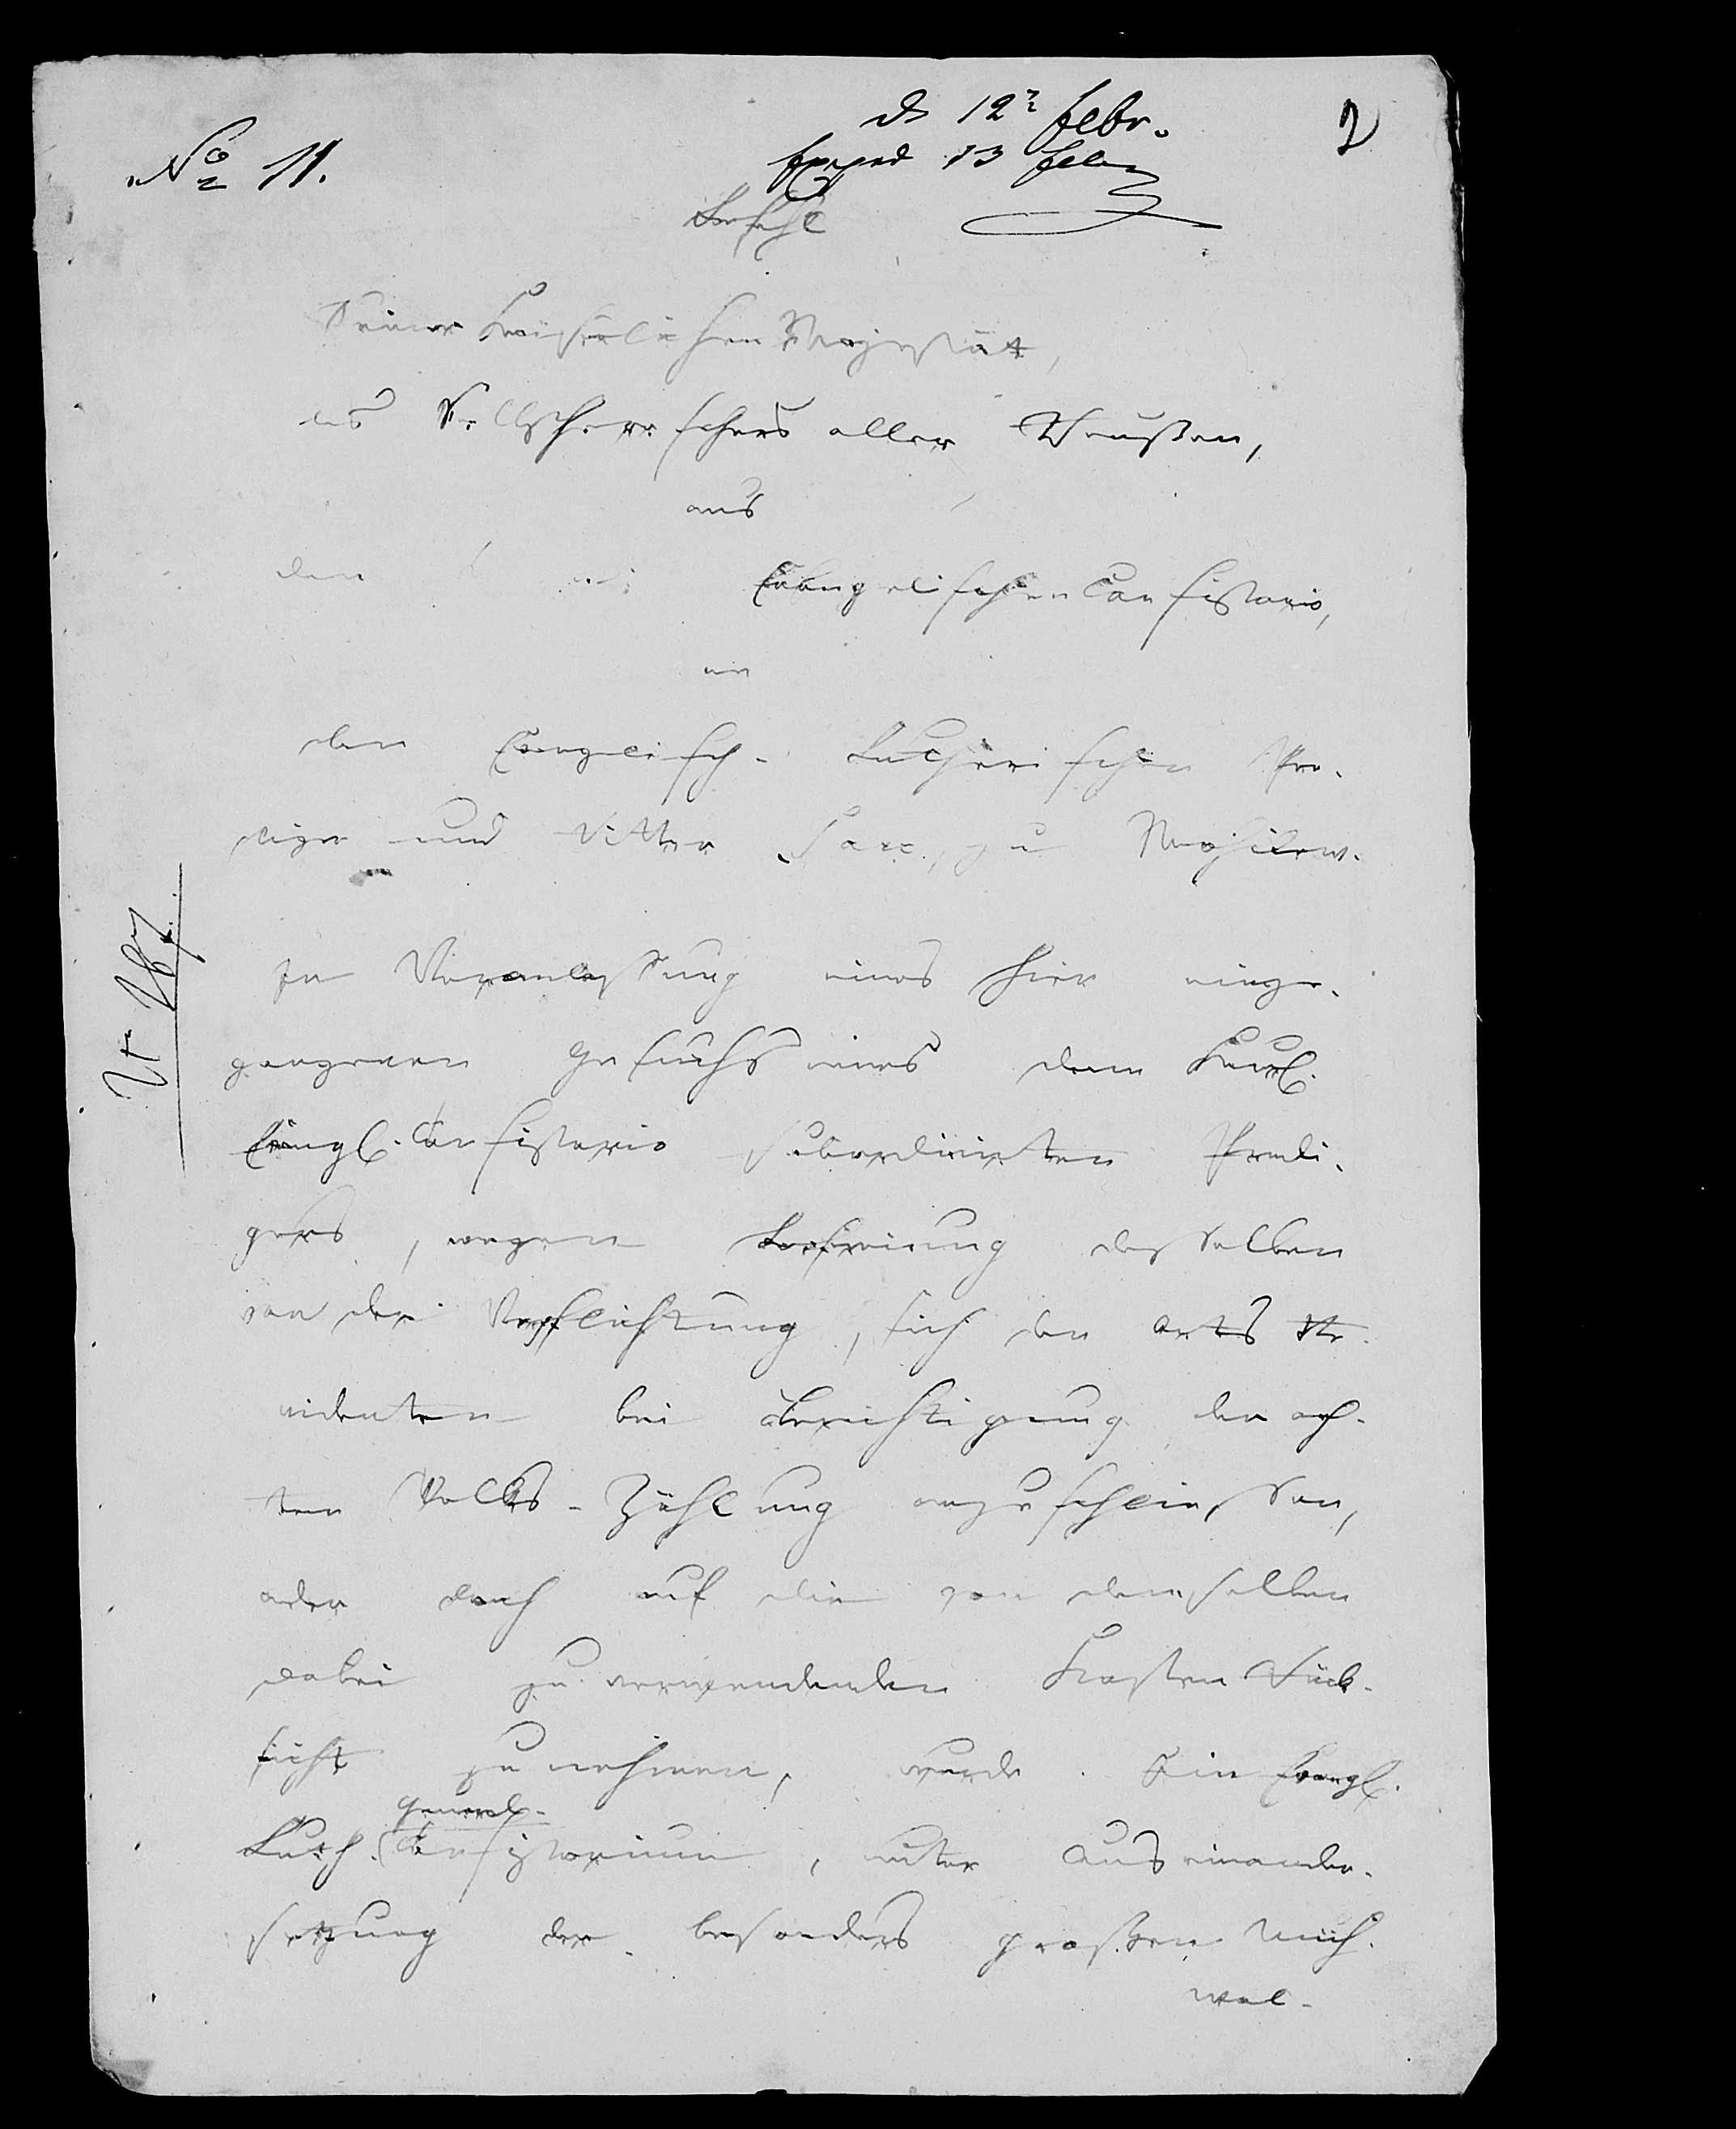 2
d 12n Febr.
Exped 13 Febr
No 11.
Befehl
Seiner Kaiserlichen Majestät,
des Selbstherrschers aller Reußen,
aus
dem Evangelischen Consistorio,
an
den Evanglisch-Lutherischen Pre-
diger und Ritter zu Mohilew.
In Veranlassung eines hier einge-
gangenen Gesuchs eines dem Kurl.
Evangl. Consistorio subordinirten Predi-
gers, wegen Befreiung desselben
von der Verpflichtung, sich den Orts Re-
videnten bei Berichtigung der ach-
ten Volks-Zählung anzuschließen,
oder doch auf die von demselben
dabei zu verwendenden Kosten Rück-
sicht zu nehmen, wurde Ein Evangl.
Luth. General-Consistorium, unter Auseinander-
setzung der besonders großen Müh-
wal-